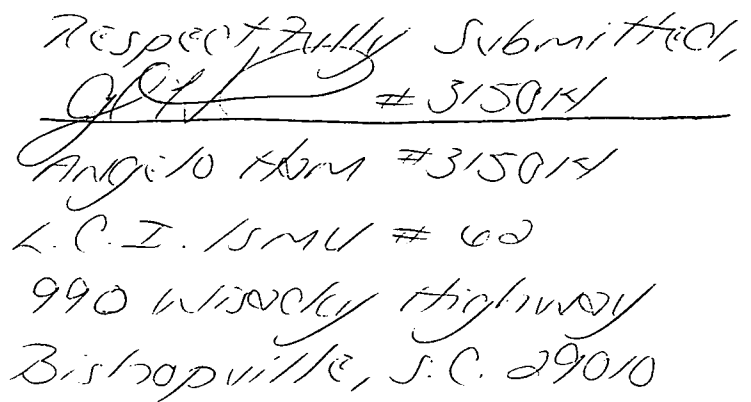 Respectfully Submitted,
#315014
Angelo Ham #315014
L.C.I. /SMU #62
990 Wisacky Highway
Bishopville, S.C. 29010